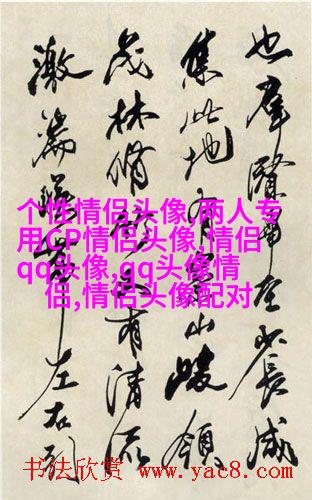 也羣賢畢至少長咸
集此地有崇山峻領
茂林脩竹又有清流
激湍暎帶左右引
个性情侣头像,两人专
用CP情侣头像,情侣
qq头像,qq头像情
侣,情侣头像配对
书法欣赏 www.yac8.com